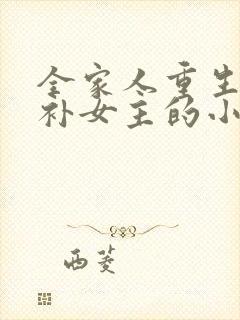 全家人重生
补女主的小
西菱